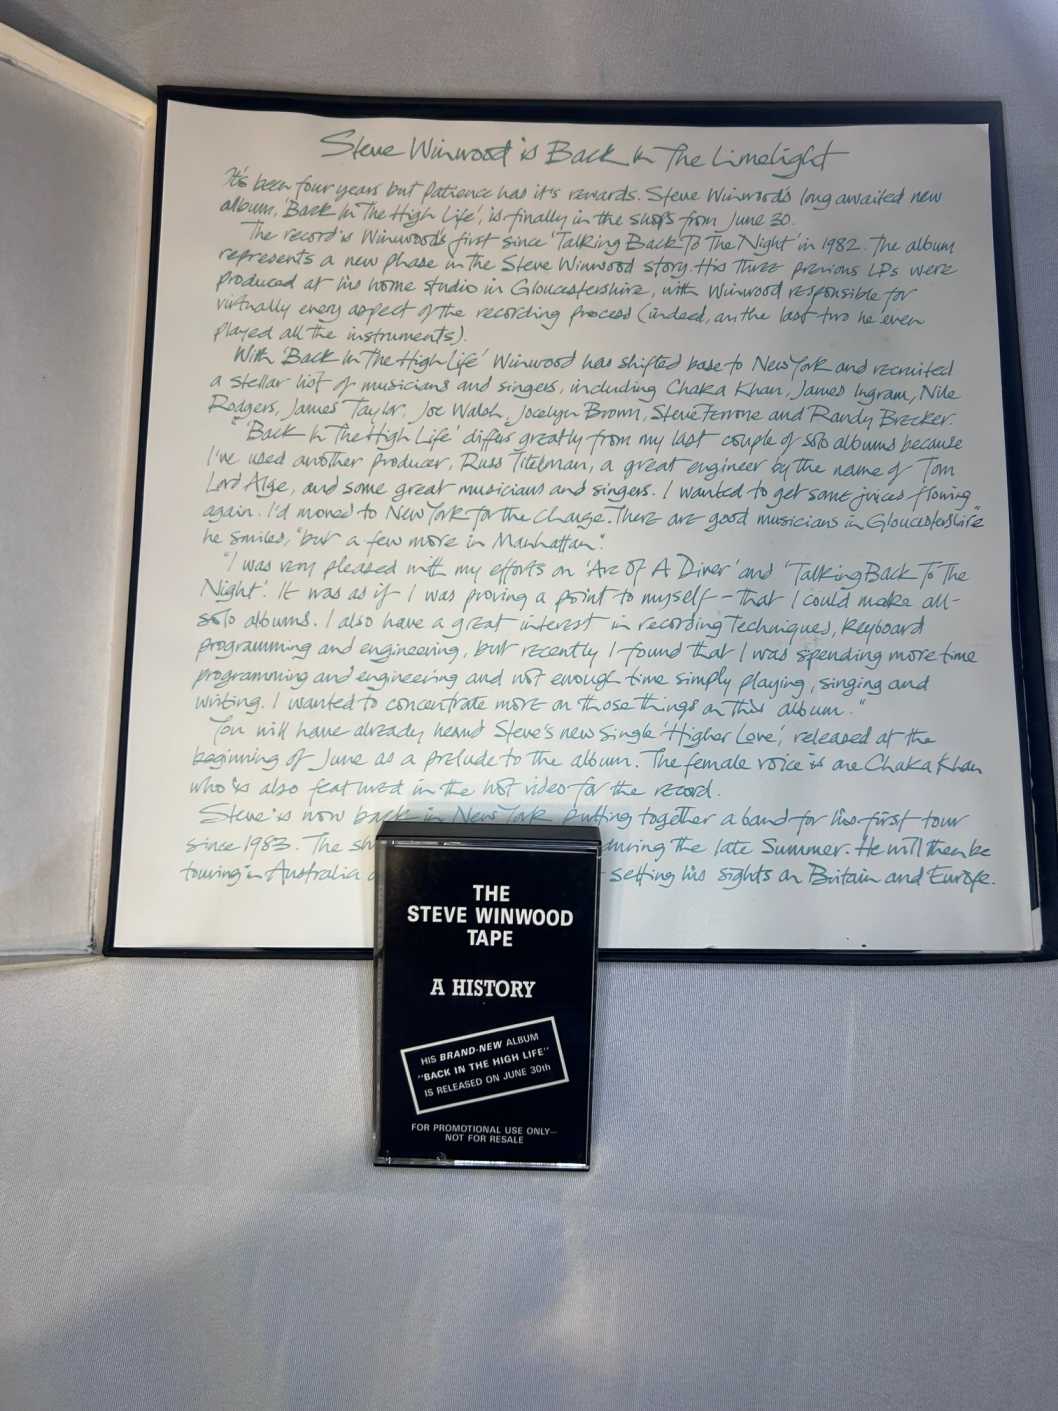 Steve Winwood is Back In The Limelight
It's been four years but patience has it's rewards. Steve Winwood's long awaited new
album, 'Back In The High Life', is finally in the shops from June 30.
The record is Winwood's first since 'Talking Back To The Night' in 1982. The album
represents a new phase in the Steve Winwood story. His three previous LPs were
produced at his home studio in Gloucestershire, with Winwood responsible for
virtually every aspect of the recording process (indeed, on the last two he even
played all the instruments).
With 'Back In The High Life' Winwood has shifted base to New York and recruited
a stellar list of musicians and singers, including Chaka Khan, James Ingram, Nile
Rodgers, James Taylor, Joe Walsh, Jocelyn Brown, Steve Ferrone and Randy Brecker.
"'Back In The High Life' differs greatly from my last couple of solo albums because
I've used another producer, Russ Titelman, a great engineer by the name of Tom
Lord Alge, and some great musicians and singers. I wanted to get some juices flowing
again. I'd moved to New York for the change. There are good musicians in Gloucestershire"
he smiles, "but a few more in Manhattan".
"I was very pleased with my efforts on 'Arc Of A Diver' and 'Talking Back To The
Night'. It was as if I was proving a point to myself - that I could make all-
solo albums. I also have a great interest in recording techniques, keyboard
programming and engineering, but recently I found that I was spending more time
programming and engineering and not enough time simply playing, singing and
writing. I wanted to concentrate more on those things on this album."
You will have already heard Steve's new single 'Higher Love', released at the
beginning of June as a prelude to the album. The female voice is one Chaka Khan
who is also featured in the hot video for the record.
Steve is now back in New York putting together a band for his first tour
since 1983. The sh during the late Summer. He will then be
touring in Australia setting his sights on Britain and Europe.
THE
STEVE WINWOOD
TAPE
A HISTORY
HIS BRAND-NEW ALBUM
"BACK IN THE HIGH LIFE"
IS RELEASED ON JUNE 30th
FOR PROMOTIONAL USE ONLY—
NOT FOR RESALE